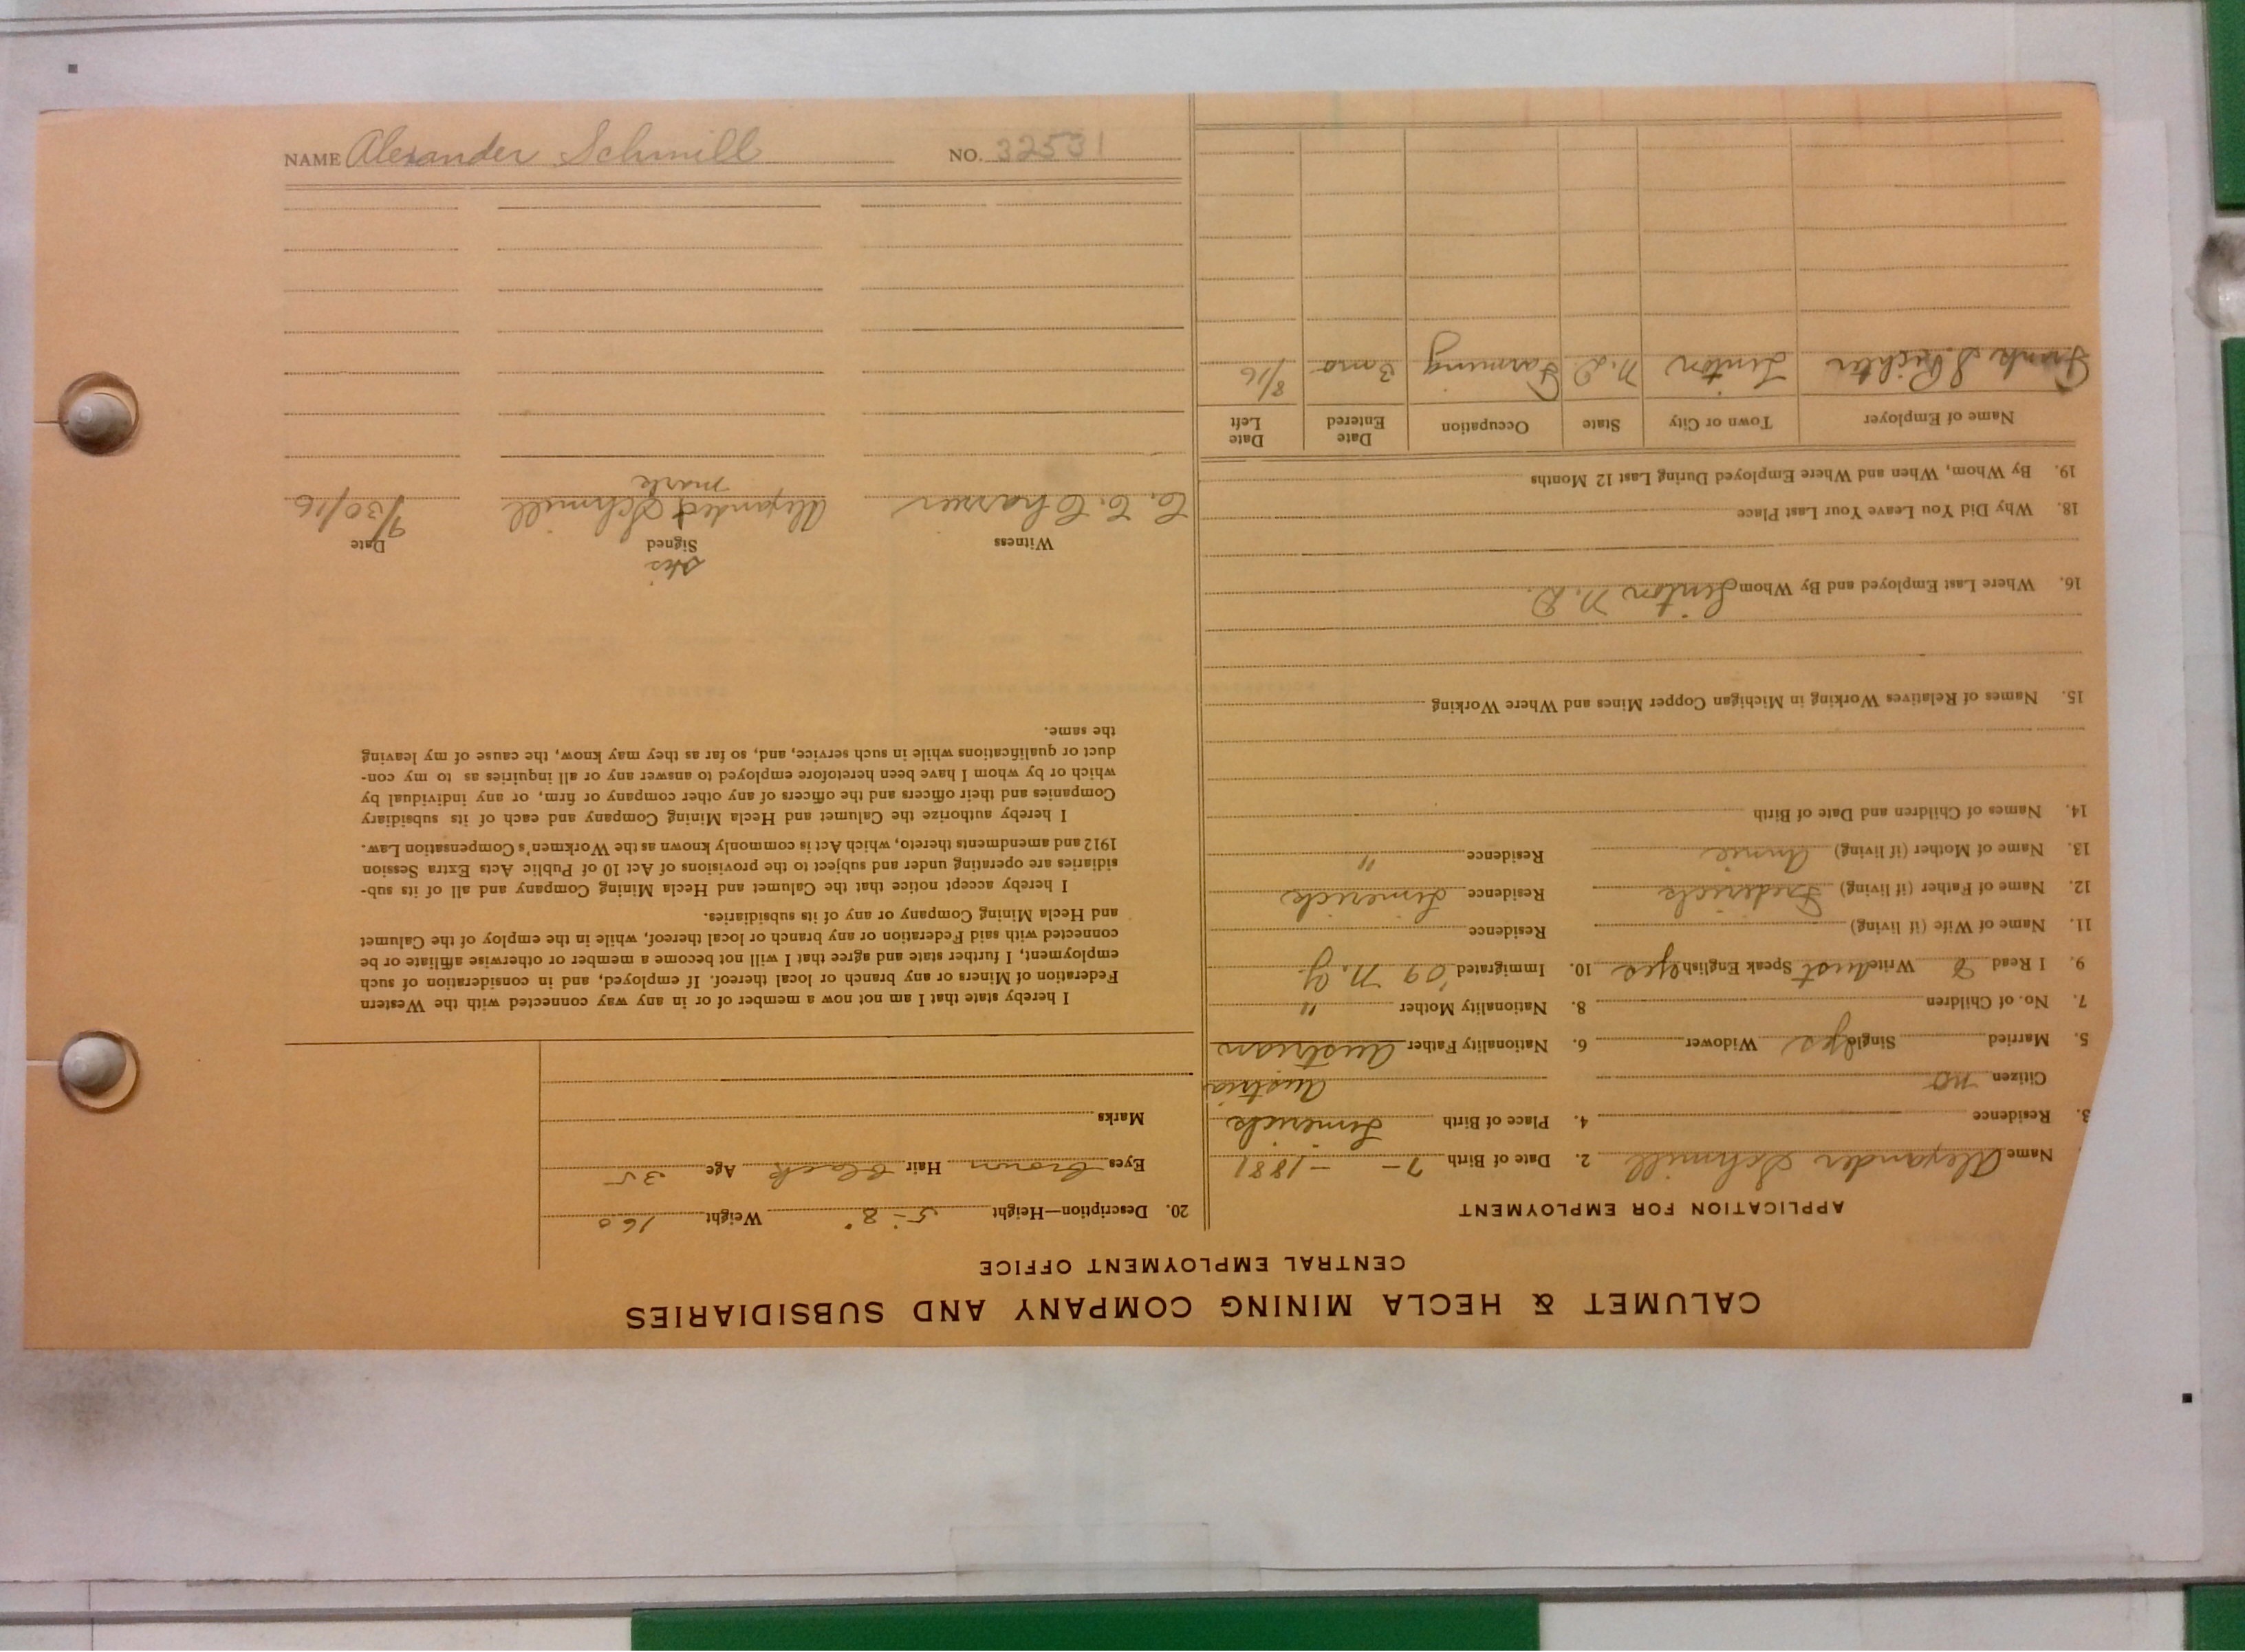 NAME Alexander Schmill NO. 32531
CALUMET & HECLA MINING COMPANY AND SUBSIDIARIES
CENTRAL EMPLOYMENT OFFICE
APPLICATION FOR EMPLOYMENT
Name Alexander Schmill 2. Date of Birth 7 - - 1881
3. Residence 4. Place of Birth Limerick
Citizen no Austria
5. Married Single yes Widower 6. Nationality Father Austrian
7. No. of Children 8. Nationality Mother "
9. I Read & Write Speak English yes 10. Immigrated '09 N.Y.
11. Name of Wife (if living) Residence
12. Name of Father (if living) Frederick Residence Limerick
13. Name of Mother (if living) Annie Residence "
14. Names of Children and Date of Birth
15. Names of Relatives Working in Michigan Copper Mines and Where Working
16. Where Last Employed and By Whom Linton N.D.
18. Why Did You Leave Your Last Place
19. By Whom, When and Where Employed During Last 12 Months
Name of Employer Town or City State Occupation Date Entered Date Left
Frank S. Richter Linton N.D. Farming 3 mo 8/16
20. Description—Height 5-8" Weight 160
Eyes brown Hair black Age 35
Marks
I hereby state that I am not now a member of or in any way connected with the Western
Federation of Miners or any branch or local thereof. If employed, and in consideration of such
employment, I further state and agree that I will not become a member or otherwise affiliate or be
connected with said Federation or any branch or local thereof, while in the employ of the Calumet
and Hecla Mining Company or any of its subsidiaries.
I hereby accept notice that the Calumet and Hecla Mining Company and all of its sub-
sidiaries are operating under and subject to the provisions of Act 10 of Public Acts Extra Session
1912 and amendments thereto, which Act is commonly known as the Workmen's Compensation Law.
I hereby authorize the Calumet and Hecla Mining Company and each of its subsidiary
Companies and their officers and the officers of any other company or firm, or any individual by
which or by whom I have been heretofore employed to answer any or all inquiries as to my con-
duct or qualifications while in such service, and, so far as they may know, the cause of my leaving
the same.
his
Witness Signed Date
Alexander Schmill 9/30/16
mark